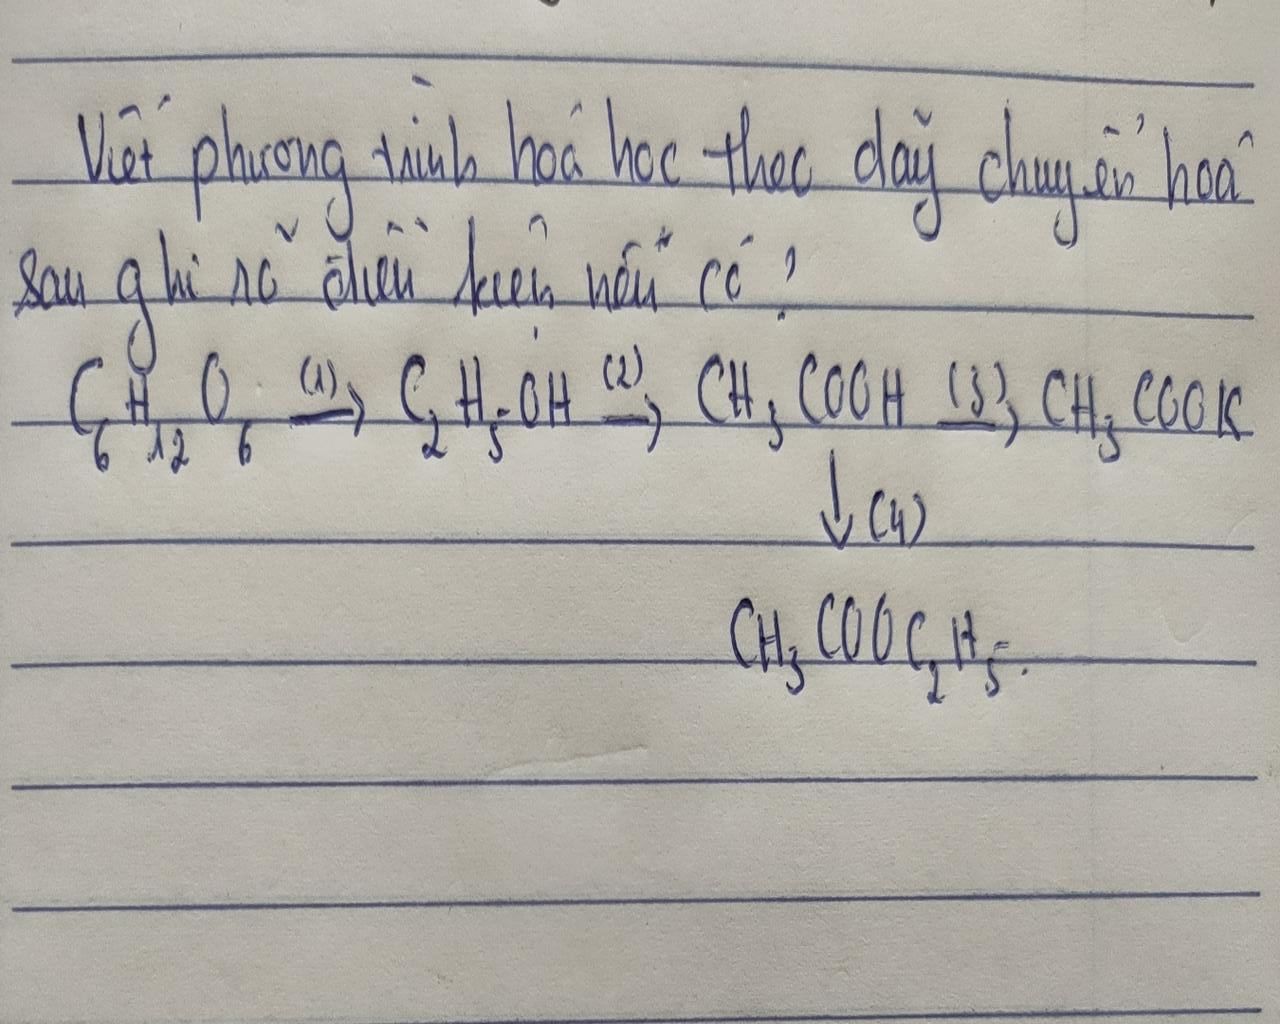 Viết phương trình hoá học theo dãy chuyển hoá
sau ghi rõ điều kiện nếu có?
C₆H₁₂O₆ (1)→ C₂H₅OH (2)→ CH₃COOH (3)→ CH₃COOK
↓(4)
CH₃COOC₂H₅.